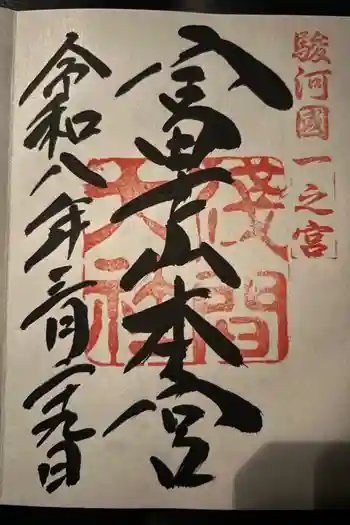 駿河國一之宮
富士山本宮
淺間大社
令和八年三月二十九日